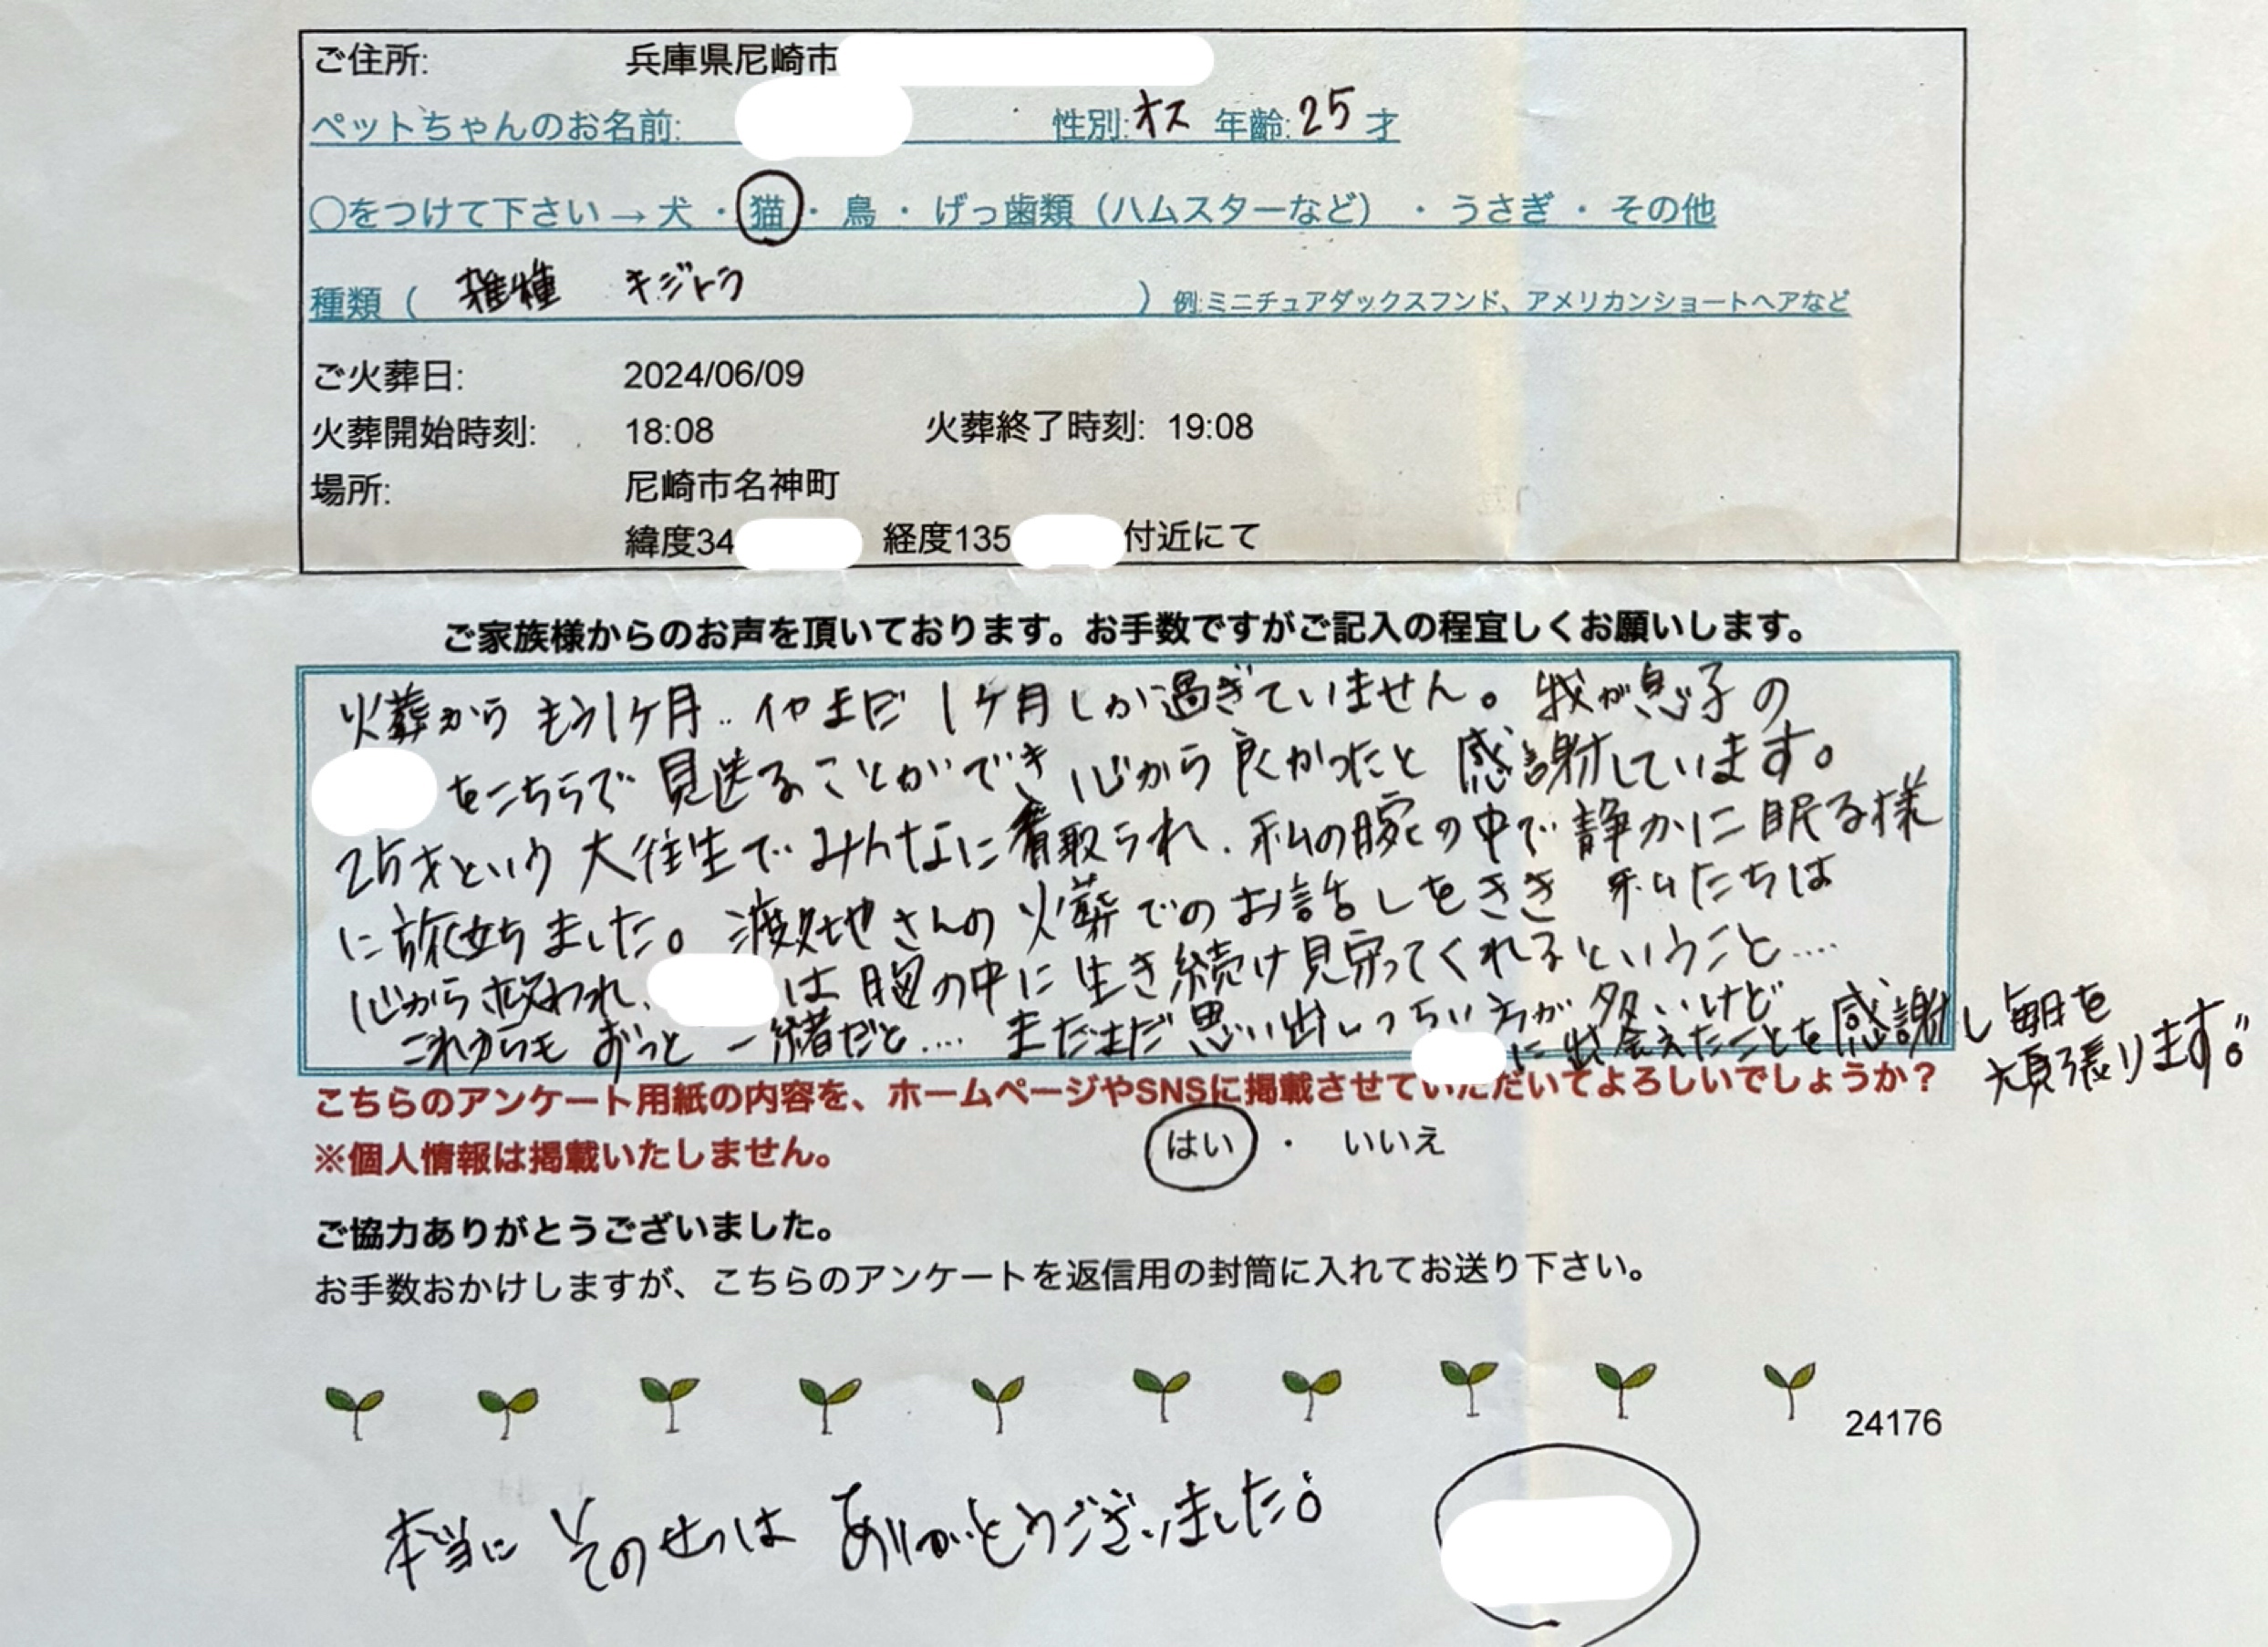 ご住所: 兵庫県尼崎市
ペットちゃんのお名前: 性別:オス 年齢:25才
〇をつけて下さい→犬・猫・鳥・げっ歯類（ハムスターなど）・うさぎ・その他
種類（ 雑種 キジトラ ）例:ミニチュアダックスフンド、アメリカンショートヘアなど
ご火葬日: 2024/06/09
火葬開始時刻: 18:08 火葬終了時刻: 19:08
場所: 尼崎市名神町
緯度34 経度135 付近にて
ご家族様からのお声を頂いております。お手数ですがご記入の程宜しくお願いします。
火葬からもう1ヶ月..いやまだ1ヶ月しか過ぎていません。我が息子の
をこちらで見送ることができ心から良かったと感謝しています。
25才という大往生でみんなに看取られ、私の腕の中で静かに眠る様
に旅立ちました。渡地さんの火葬でのお話しをきき 私たちは
心から救われ、は胸の中に生き続け見守ってくれるということ....
これからもずっと一緒だと....まだまだ思い出しっちい方が多いけど
に出会えたことを感謝し毎日を
頑張ります。
こちらのアンケート用紙の内容を、ホームページやSNSに掲載させていただいてよろしいでしょうか？
※個人情報は掲載いたしません。 はい ・ いいえ
ご協力ありがとうございました。
お手数おかけしますが、こちらのアンケートを返信用の封筒に入れてお送り下さい。
24176
本当に その せつは ありがとうございました。